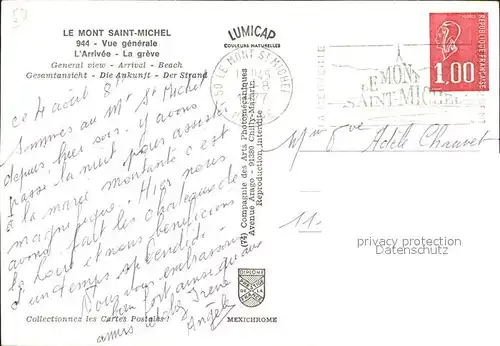 LE MONT SAINT-MICHEL
944 - Vue générale
L'Arrivée - La grève
General view - Arrival - Beach
Gesamtansicht - Die Ankunft - Der Strand
ce 4 août 8
Sommes au Mt St Michel
depuis hier soir. Y avons
passé la nuit pour assister
à la marée montante c'est
magnifique! Hier nous
avons fait les châteaux de
la Loire et nous bénéficions
d'un temps splendide.
Nous vous embrassons
bien fort ainsi qu'aux
amis et chez Irène
Angèle
Collectionnez les Cartes Postales !
LUMICAP
COULEURS NATURELLES
(74) Compagnie des Arts Photomécaniques
Avenue Arago - 91380 Chilly-Mazarin
Reproduction Interdite
MEXICHROME
50 LE MONT ST MICHEL
LE MONT
SAINT-MICHEL
1,00
Adèle Chauvet
11.
privacy protection
Datenschutz